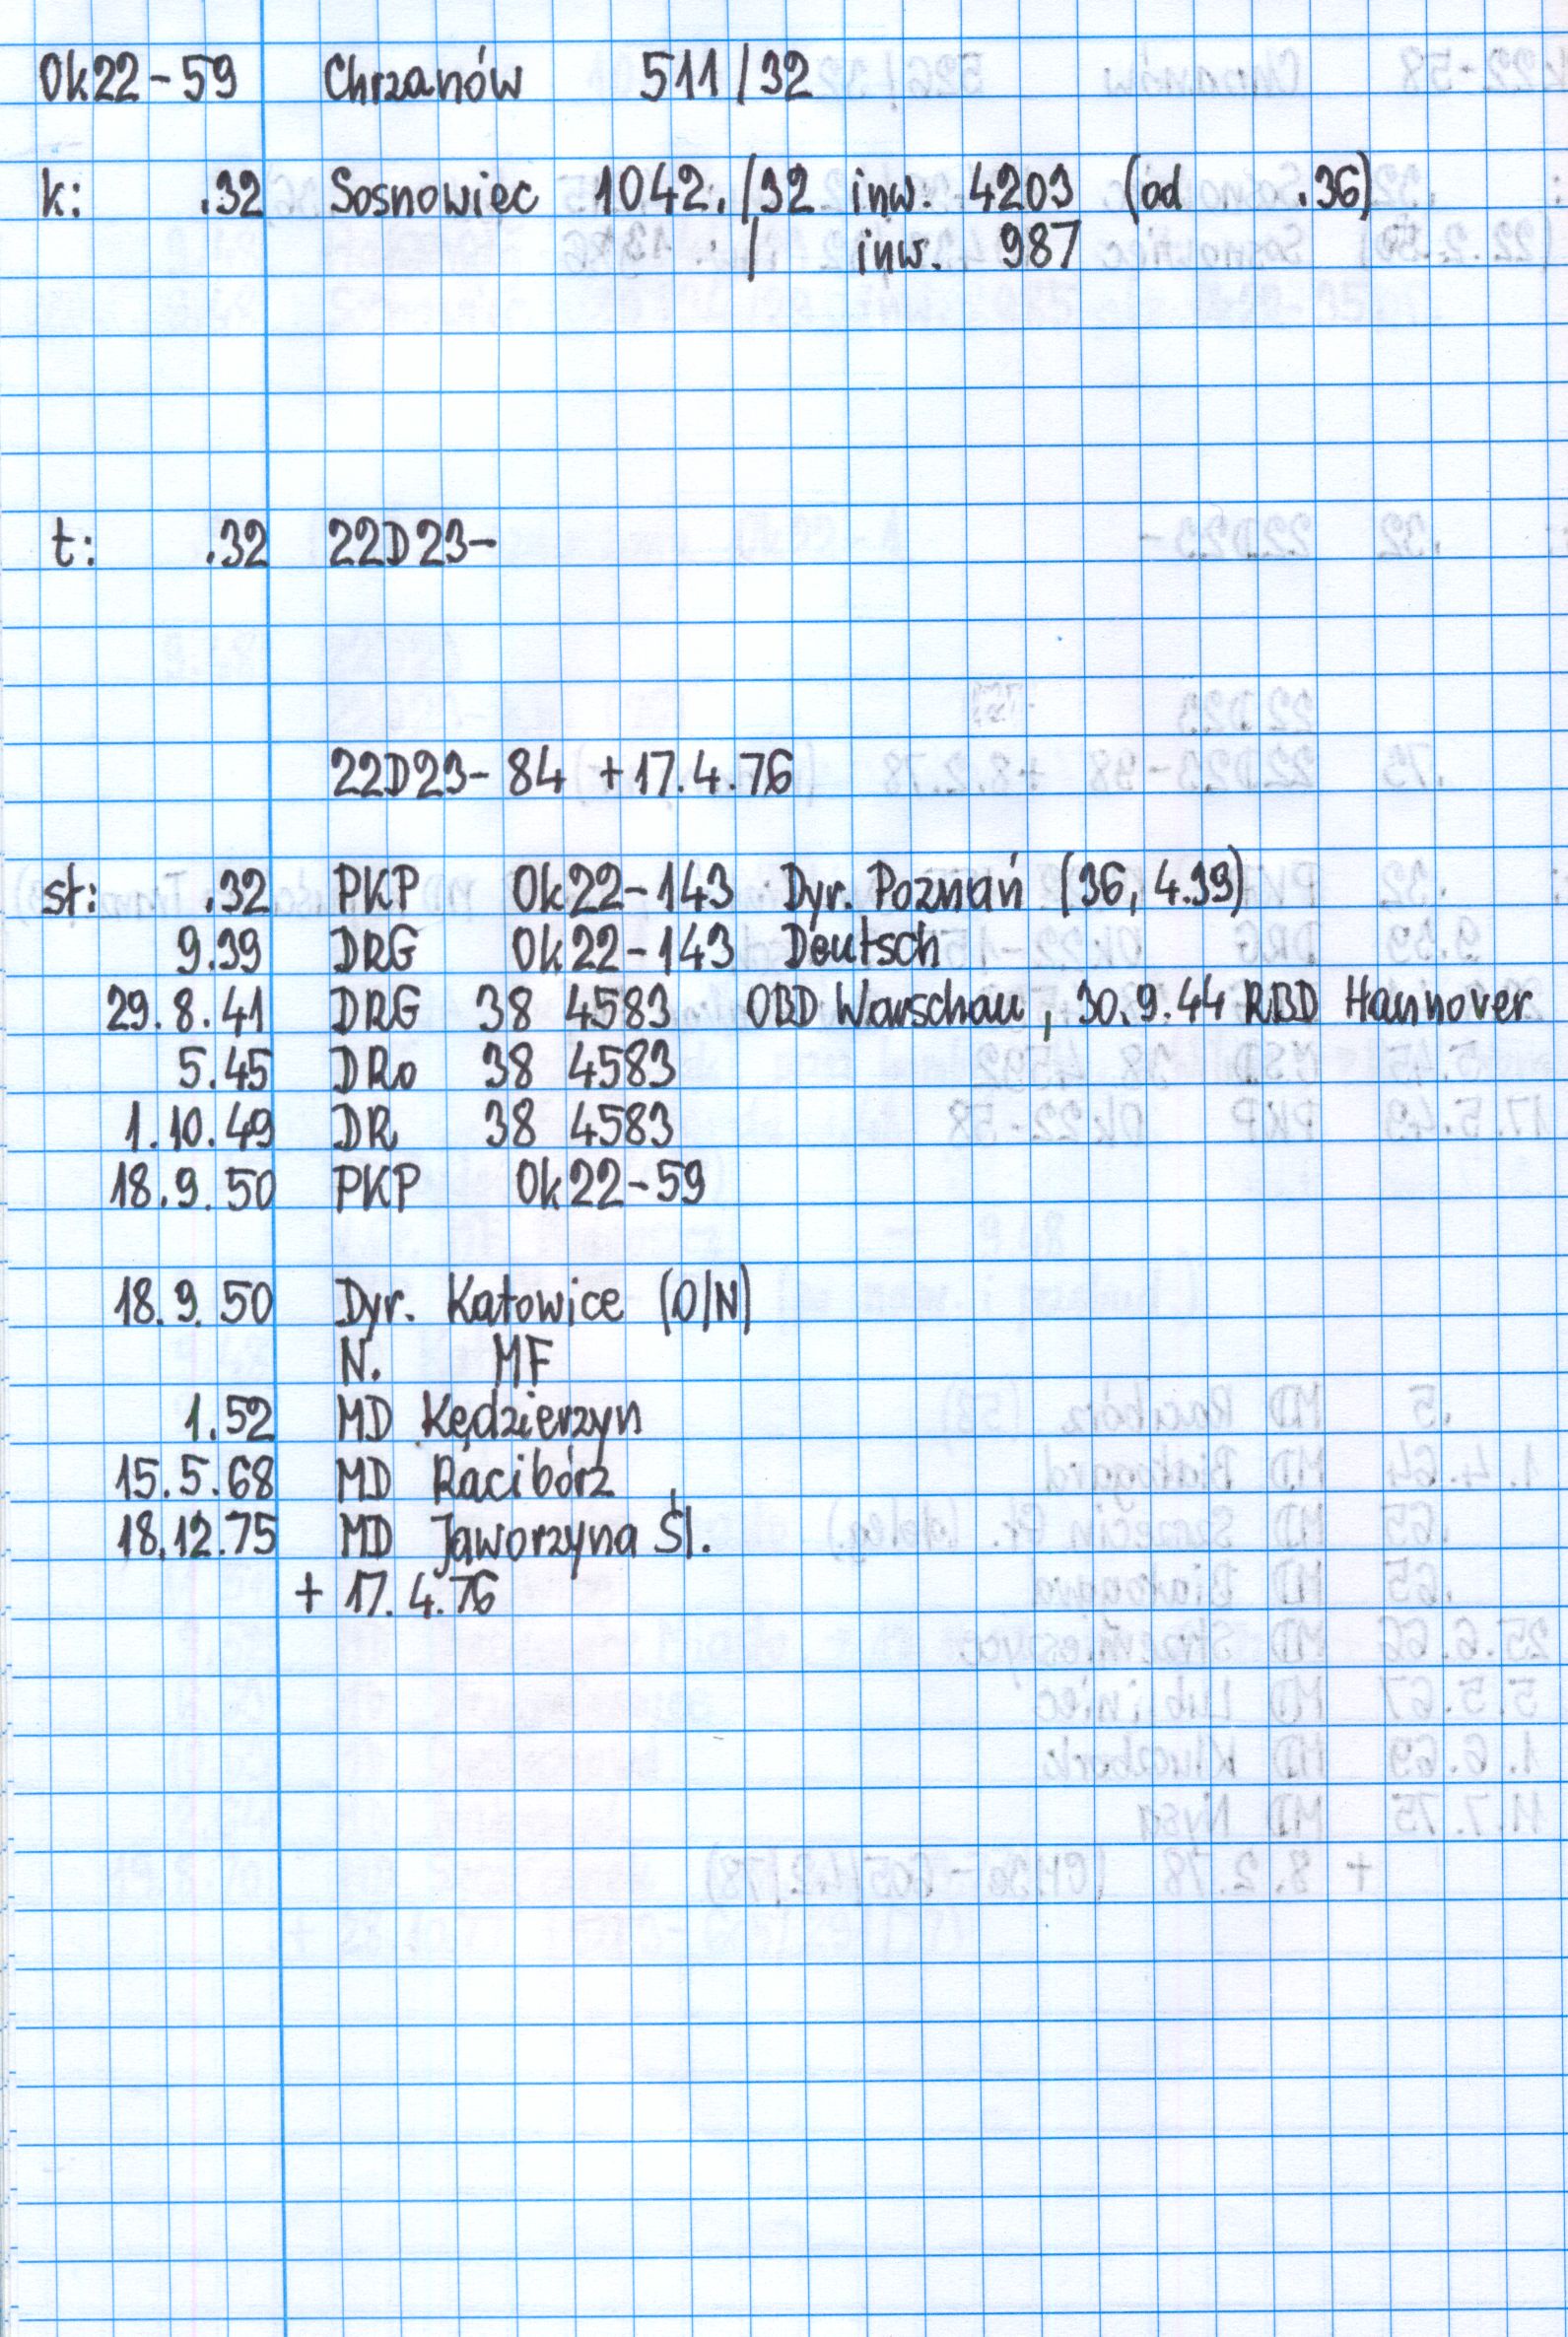 Ok22-59 Chrzanów 511/32
k: .32 Sosnowiec 1042./32 inw. 4203 (od .36)
/ inw. 987
t: .32 22D23-
22D23-84 +17.4.76
st: .32 PKP Ok22-143 Dyr. Poznań (36, 4.39)
9.39 DRG Ok22-143 Deutsch
29.8.41 DRG 38 4583 OBD Warschau, 30.9.44 RBD Hannover
5.45 DRo 38 4583
1.10.49 DR 38 4583
18.9.50 PKP Ok22-59
18.9.50 Dyr. Katowice (O/N)
N. MF
1.52 MD Kędzierzyn
15.5.68 MD Racibórz
18.12.75 MD Jaworzyna Śl.
+ 17.4.76